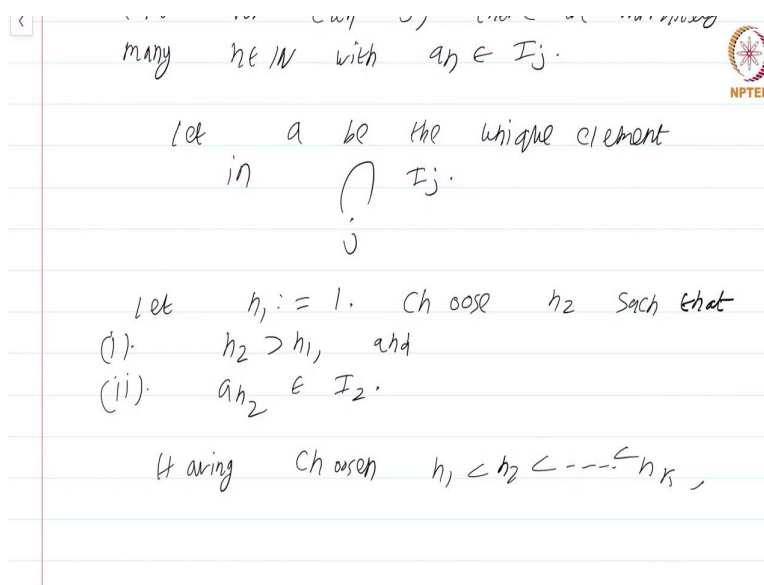 many n ∈ ℕ with a_n ∈ I_j.
NPTEL
Let a be the unique element
in ⋂_j I_j.
Let n_1 := 1. Choose n_2 Such that
(i). n_2 > n_1, and
(ii). a_{n_2} ∈ I_2.
Having Choosen n_1 < n_2 < ---- < n_k,